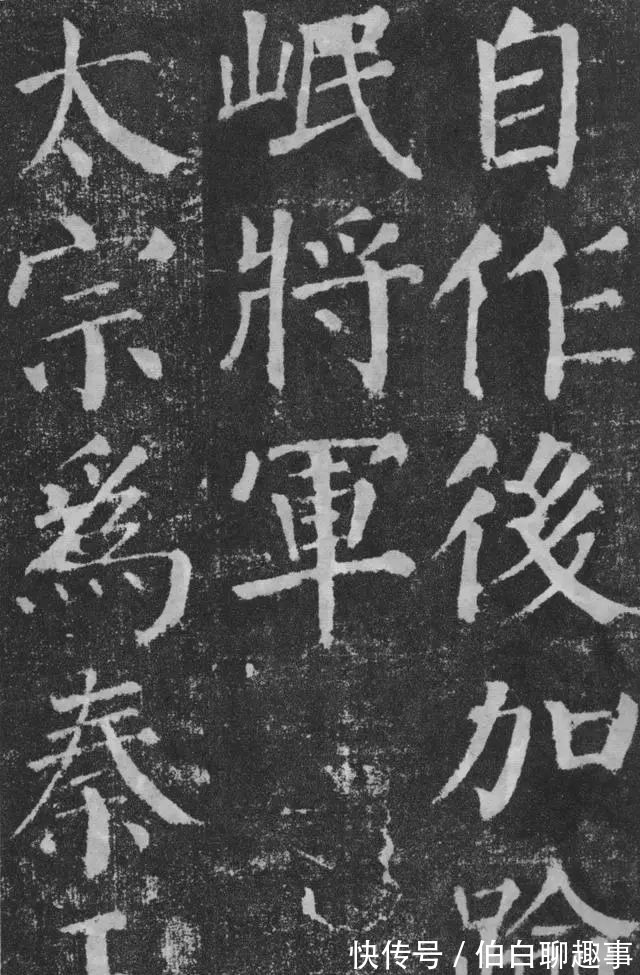 自作後加
岷將軍
太宗爲秦
快传号 / 伯白聊趣事